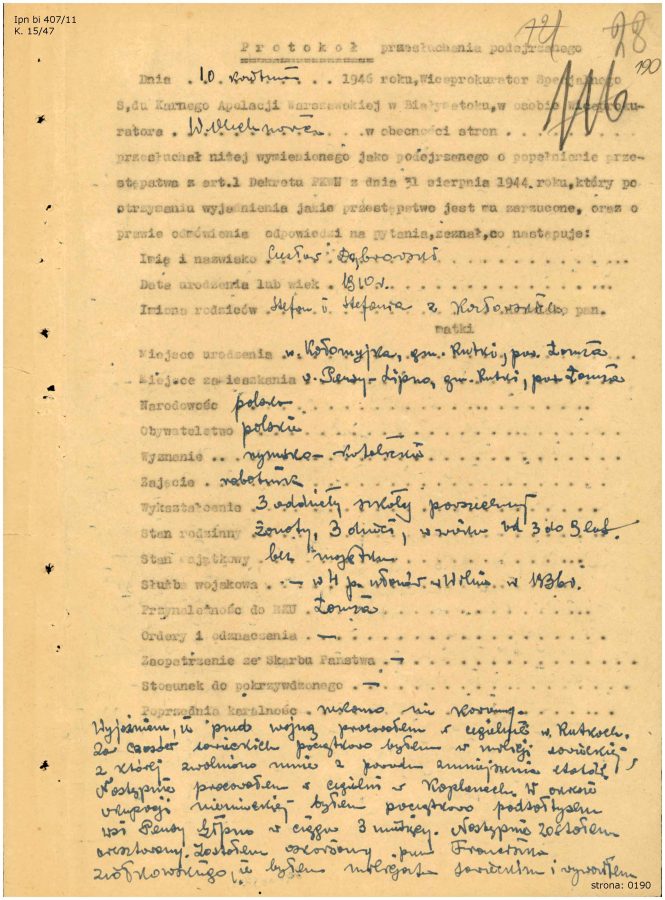 Ipn bi 407/11
K. 15/47
28
190
116
Protokoł przesłuchania podejrzanego
Dnia . 10. kwietnia . . . 1946 roku, Wiceprokurator Specjalnego
Sądu Karnego Apelacji Warszawskiej w Białymstoku, w osobie wiceproku-
ratora . . . . w obecności stron . . . . . . . .
przesłuchał niżej wymienionego jako podejrzanego o popełnienie prze-
stępstwa z art.1 Dekretu PKWN z dnia 31 sierpnia 1944 roku, który po
otrzymaniu wyjaśnienia jakie przestępstwo jest mu zarzucone, oraz o
prawie odmówienia odpowiedzi na pytania, zeznał, co następuje:
Imię i nazwisko Dąbrowski
Data urodzenia lub wiek . 1910 r.
Imiona rodziców . Stefan i Stefania z pan.
matki
Miejsce urodzenia w. Kołomyjka, gm. Rutki, pow. Łomża
Miejsce zamieszkania w. Pęsy-Lipno, gm. Rutki, pow. Łomża
Narodowość polska
Obywatelstwo polskie
Wyznanie . . rzymsko-katolickie
Zajęcie . robotnik
Wykształcenie . 3 oddziały szkoły powszechnej
Stan rodzinny żonaty, 3 dzieci, w wieku od 3 do 9 lat.
Stan majątkowy . bez majątku
Służba wojskowa . – w 4 p. ułanów w Wilnie w 1936 r.
Przynależność do RKU . Łomża
Ordery i odznaczenia . –
Zaopatrzenie ze Skarbu Państwa . –
Stosunek do pokrzywdzonego –
Poprzednia karalność . rzekomo nie karany.
Wyjaśniam, iż przed wojną pracowałem w cegielni w. Rutkach.
Za czasów sowieckich początkowo byłem w milicji sowieckiej,
z której zwolniono mnie z powodu zmniejszenia etatów.
Następnie pracowałem w cegielni w Kaplanach. W okresie
okupacji niemieckiej byłem początkowo podsołtysem
wsi Pęsy Lipno w ciągu 3 miesięcy. Następnie zostałem
aresztowany. Zostałem oskarżony przez Franciszka
Ziółkowskiego, iż byłem milicjantem sowieckim i wydawałem
strona: 0190